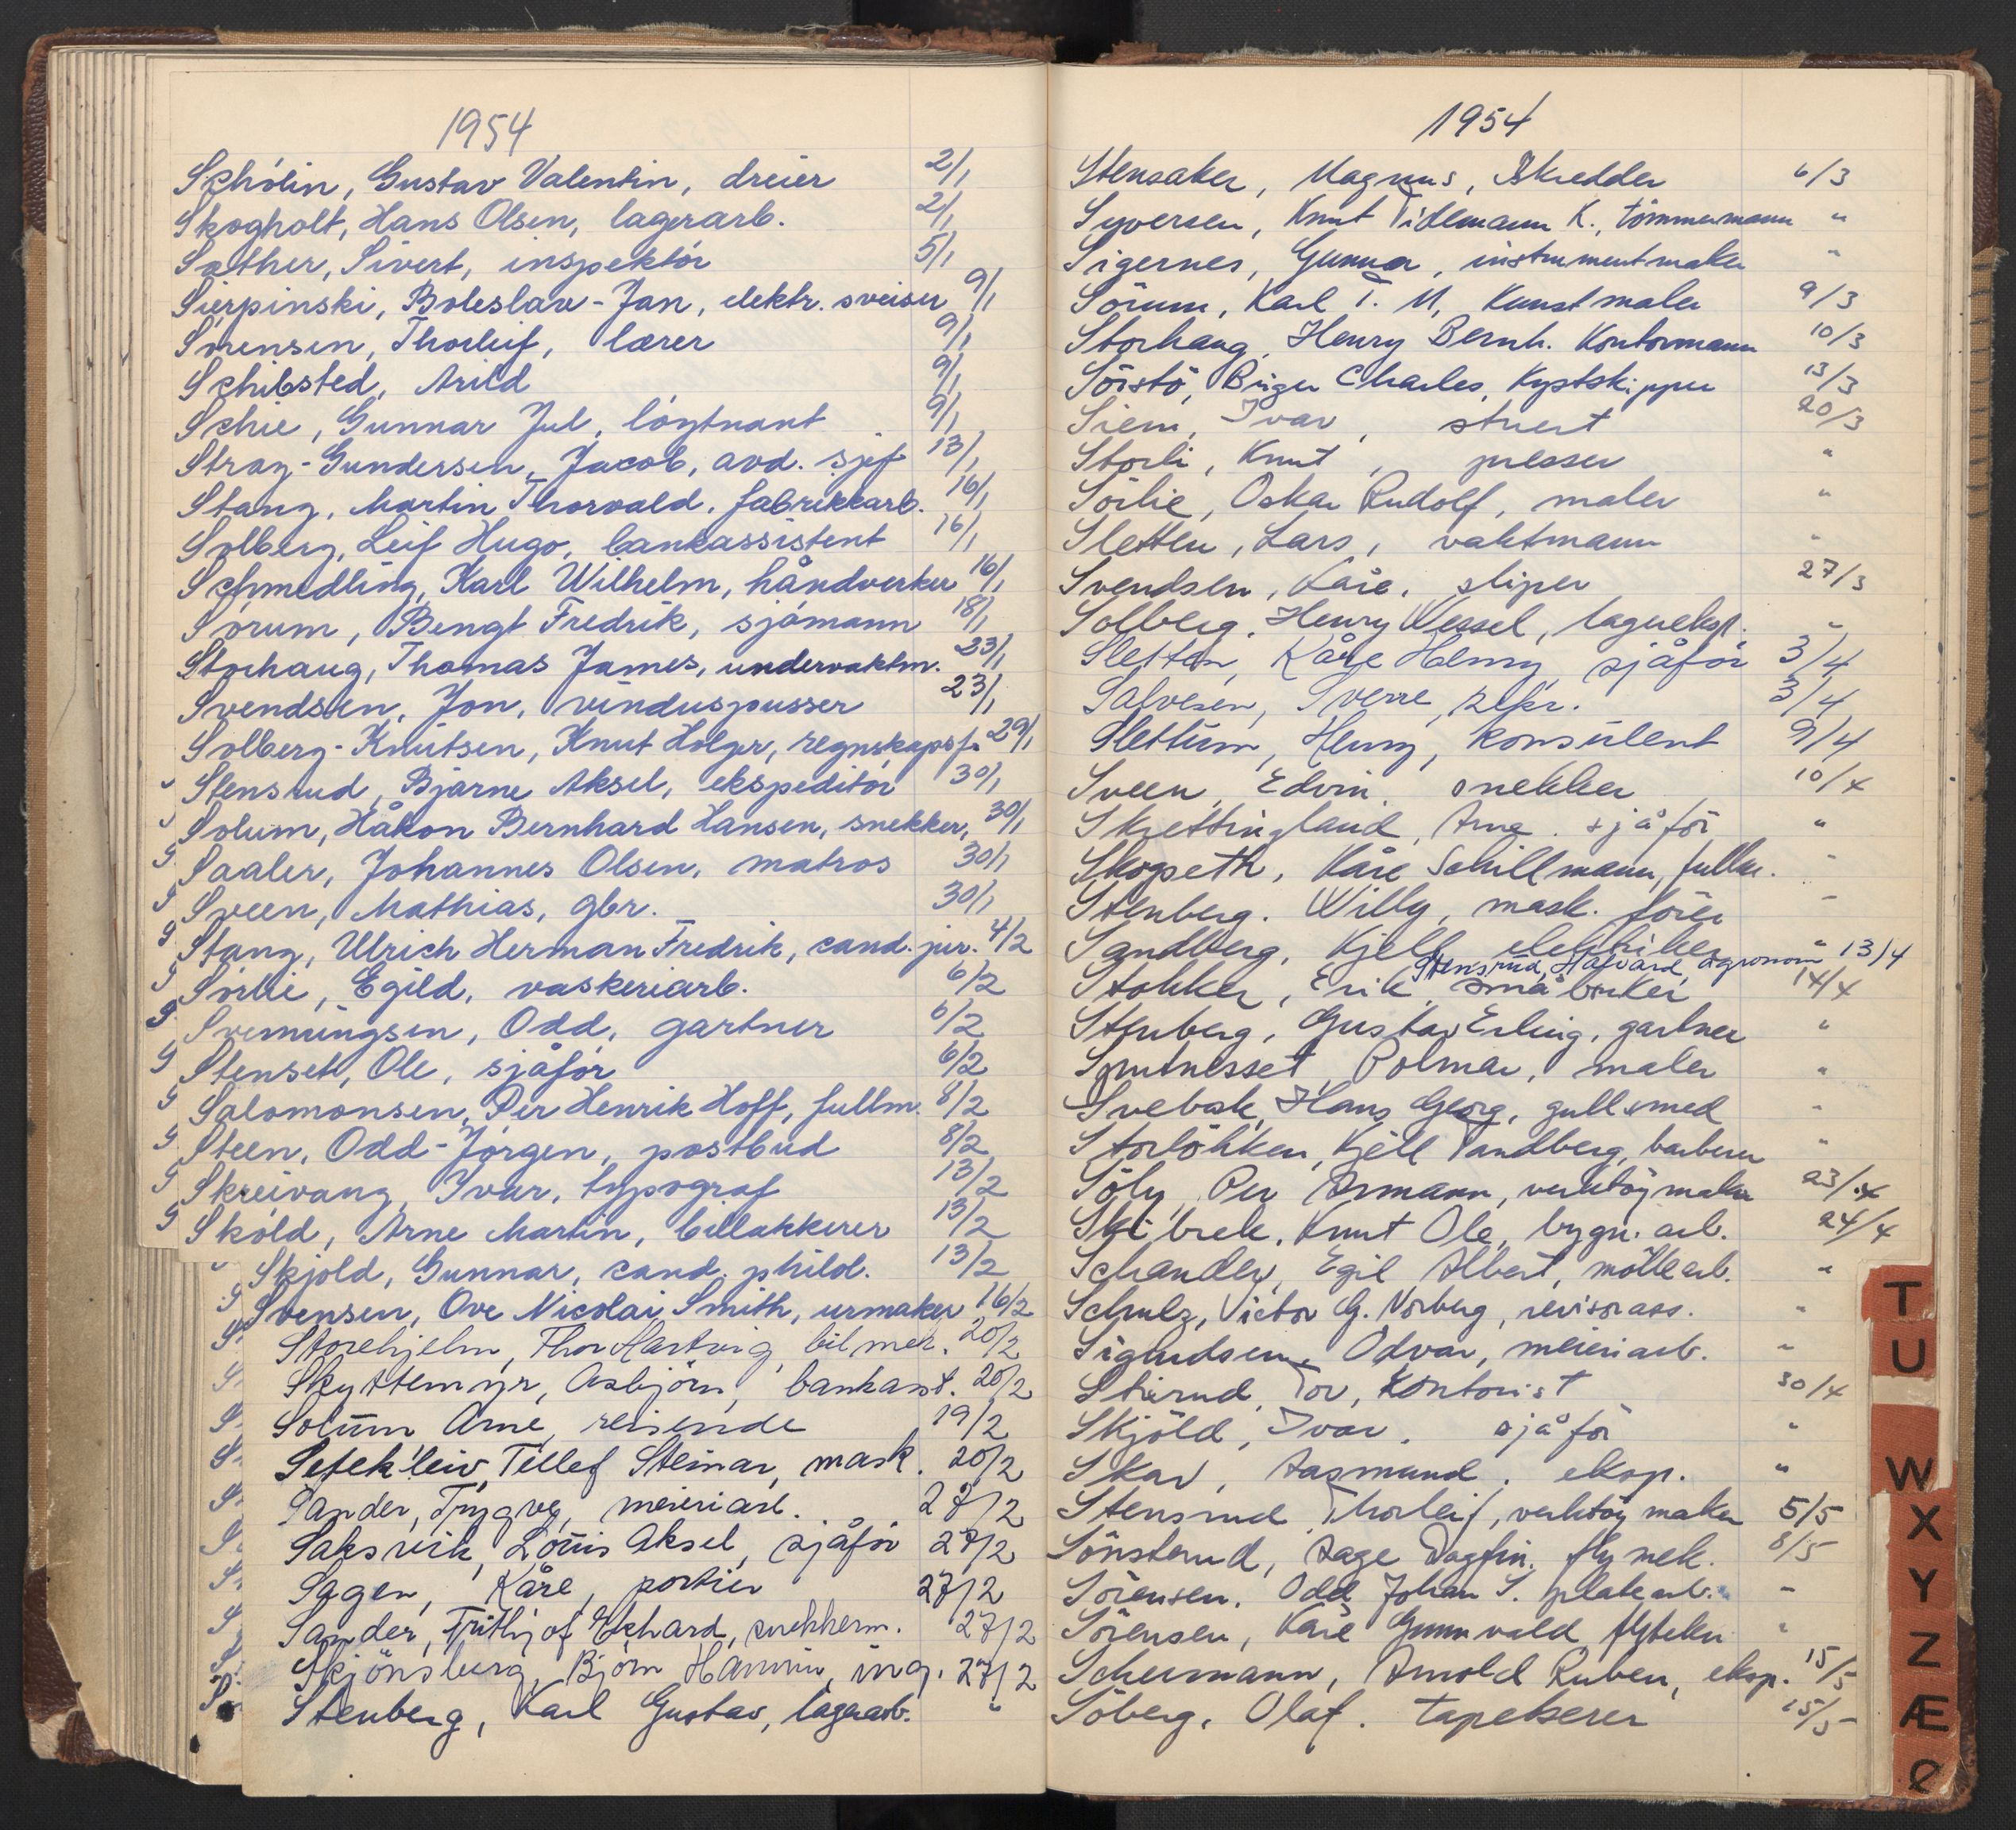 1954
Schölin, Gustav Valentin, dreier 2/1
Skogholt, Hans Olsen, lagerarb. 2/1
Sæther, Sivert, inspektör 5/1
Sierpinski, Boleslaw-Jan, elektr. sveiser 9/1
Sörensen, Thorleif, lærer 9/1
Schibsted, Arild 9/1
Schie, Gunnar Jul, löytnant 9/1
Stray-Gundersen, Jacob, avd. sjef 13/1
Stang, Martin Thorvald, fabrikkarb. 16/1
Solberg, Leif Hugo, bankassistent 16/1
Schmedling, Karl Wilhelm, håndverker 16/1
Sörum, Bengt Fredrik, sjömann 18/1
Storhaug, Thomas James, undervaktm. 23/1
Svendsen, Jon, vinduspusser 23/1
Solberg-Knutsen, Knut Holger, regnskapsf. 29/1
Stensrud, Bjarne Aksel, ekspeditör 30/1
Solum, Håkon Bernhard Hansen, snekker, 30/1
Saaler, Johannes Olsen, matros 30/1
Sveen, Mathias, gbr. 30/1
Stang, Ulrich Herman Fredrik, cand. jur. 4/2
Sörlie, Egild, vaskeriarb. 6/2
Svenungsen, Odd, gartner 6/2
Stenseth, Ole, sjåför 6/2
Salomonsen, Per Henrik Hoff, fullm. 8/2
Steen, Odd-Jörgen, postbud 8/2
Skreivang, Ivar, typograf 13/2
Sköld, Arne Martin, billakkerer 13/2
Skjold, Gunnar, cand. philol. 13/2
Svensen, Ove Nicolai Smith, urmaker 16/2
Storehjelm, Thor Hartvig, bilmek. 20/2
Skyttemyr, Asbjörn, bankasst. 20/2
Solum Arne, reisende 19/2
Setekleiv, Tellef Steinar, mask. 20/2
Sander, Trygve, meieriarb. 27/2
Saksvik, Louis Aksel, sjåför 27/2
Sagen, Kåre, portier 27/2
Sander, Frithjof Ekhard, snekkerm. 27/2
Skjönsberg, Björn Hamnin, ing. 27/2
Stenberg, Karl Gustav, lagerarb. "
1954
Stensaker, Magnus, Skredder 6/3
Syversen, Knut Tidemann K., tömmermann "
Sigernes, Gunnar, instrumentmaker "
Sörum, Karl T. M, Kunstmaler 9/3
Storhaug, Henry Bernh. Kontormann 10/3
Sörstö, Birger Charles, Kystskipper 13/3
Siem, Ivar, stuert 20/3
Storli, Knut, presser "
Sörlie, Oskar Rudolf, maler "
Sletten, Lars, vaktmann "
Svendsen, Kåre, sliper 27/3
Solberg, Henry Wessel, lagereksp. "
Sletten, Kåre Henry, sjåför 3/4
Salvesen, Sverre, repr. 3/4
Slettum, Henry, konsulent 9/4
Sveen, Edvin, snekker 10/4
Skrettingland, Arne. sjåför "
Skogseth, Kåre Schillmann, fullm. "
Stenberg. Willy, mask. förer "
Sandberg, Kjell, elektriker "
Stensrud, Håvard, agronom 13/4
Stokker, Erik småbruker 14/4
Stenberg, Gustav Erling, gartner "
Sputnesset, Polmar, maler "
Svebak, Hans Georg, gullsmed "
Storlökken, Kjell Sandberg, barberer "
Söly, Per Armann, verktöymaker 23/4
Skibrek, Knut Ole, bygn. arb. 24/4
Schandey, Egil Albert, möllearb. "
Schulz, Victor G. Norberg, revisorass. "
Sigurdsen, Odvar, meieriarb. "
Stierud, Tor, Kontorist 30/4
Skjöld, Ivar, sjåför "
Skar, Aasmund, eksp. "
Stensrud, Thorleif, verktöymaker 5/5
Sönsterud, Aage Dagfin, flymek. 8/5
Sörensen, Odd Johan S. platearb. "
Sörensen, Kåre Gunnvald flytekn "
Schermann, Arnold Ruben, eksp. 15/5
Söberg, Olaf. tapetserer 15/5
T
U
W
X
Y
Z
Æ
Ø